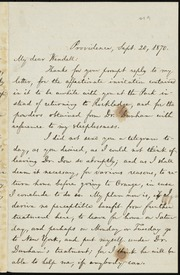 Providence, Sept. 20, 1870.
My dear Wendell:
Thanks for your prompt reply to my
letter, for the affectionate invitation
it to be with you at the
of returning to Rockledge, and for the
obtained from Dr.
reference to my sleeplessness.
I did not send you a telegram to-
day, as you desired, as I could not think of
leaving Dr. so abruptly; and as I shall
deem it necessary, for various reasons, to re-
turn home before going to Orange, in case
I conclude to do so. My plan now is, if I
derive no perceptible benefit from further
treatment here, to leave for home on Satur-
day, and perhaps on Monday or Tuesday go
to New York, and put myself under Dr.
treatment; for I think he will be
able to help me, if anybody can.